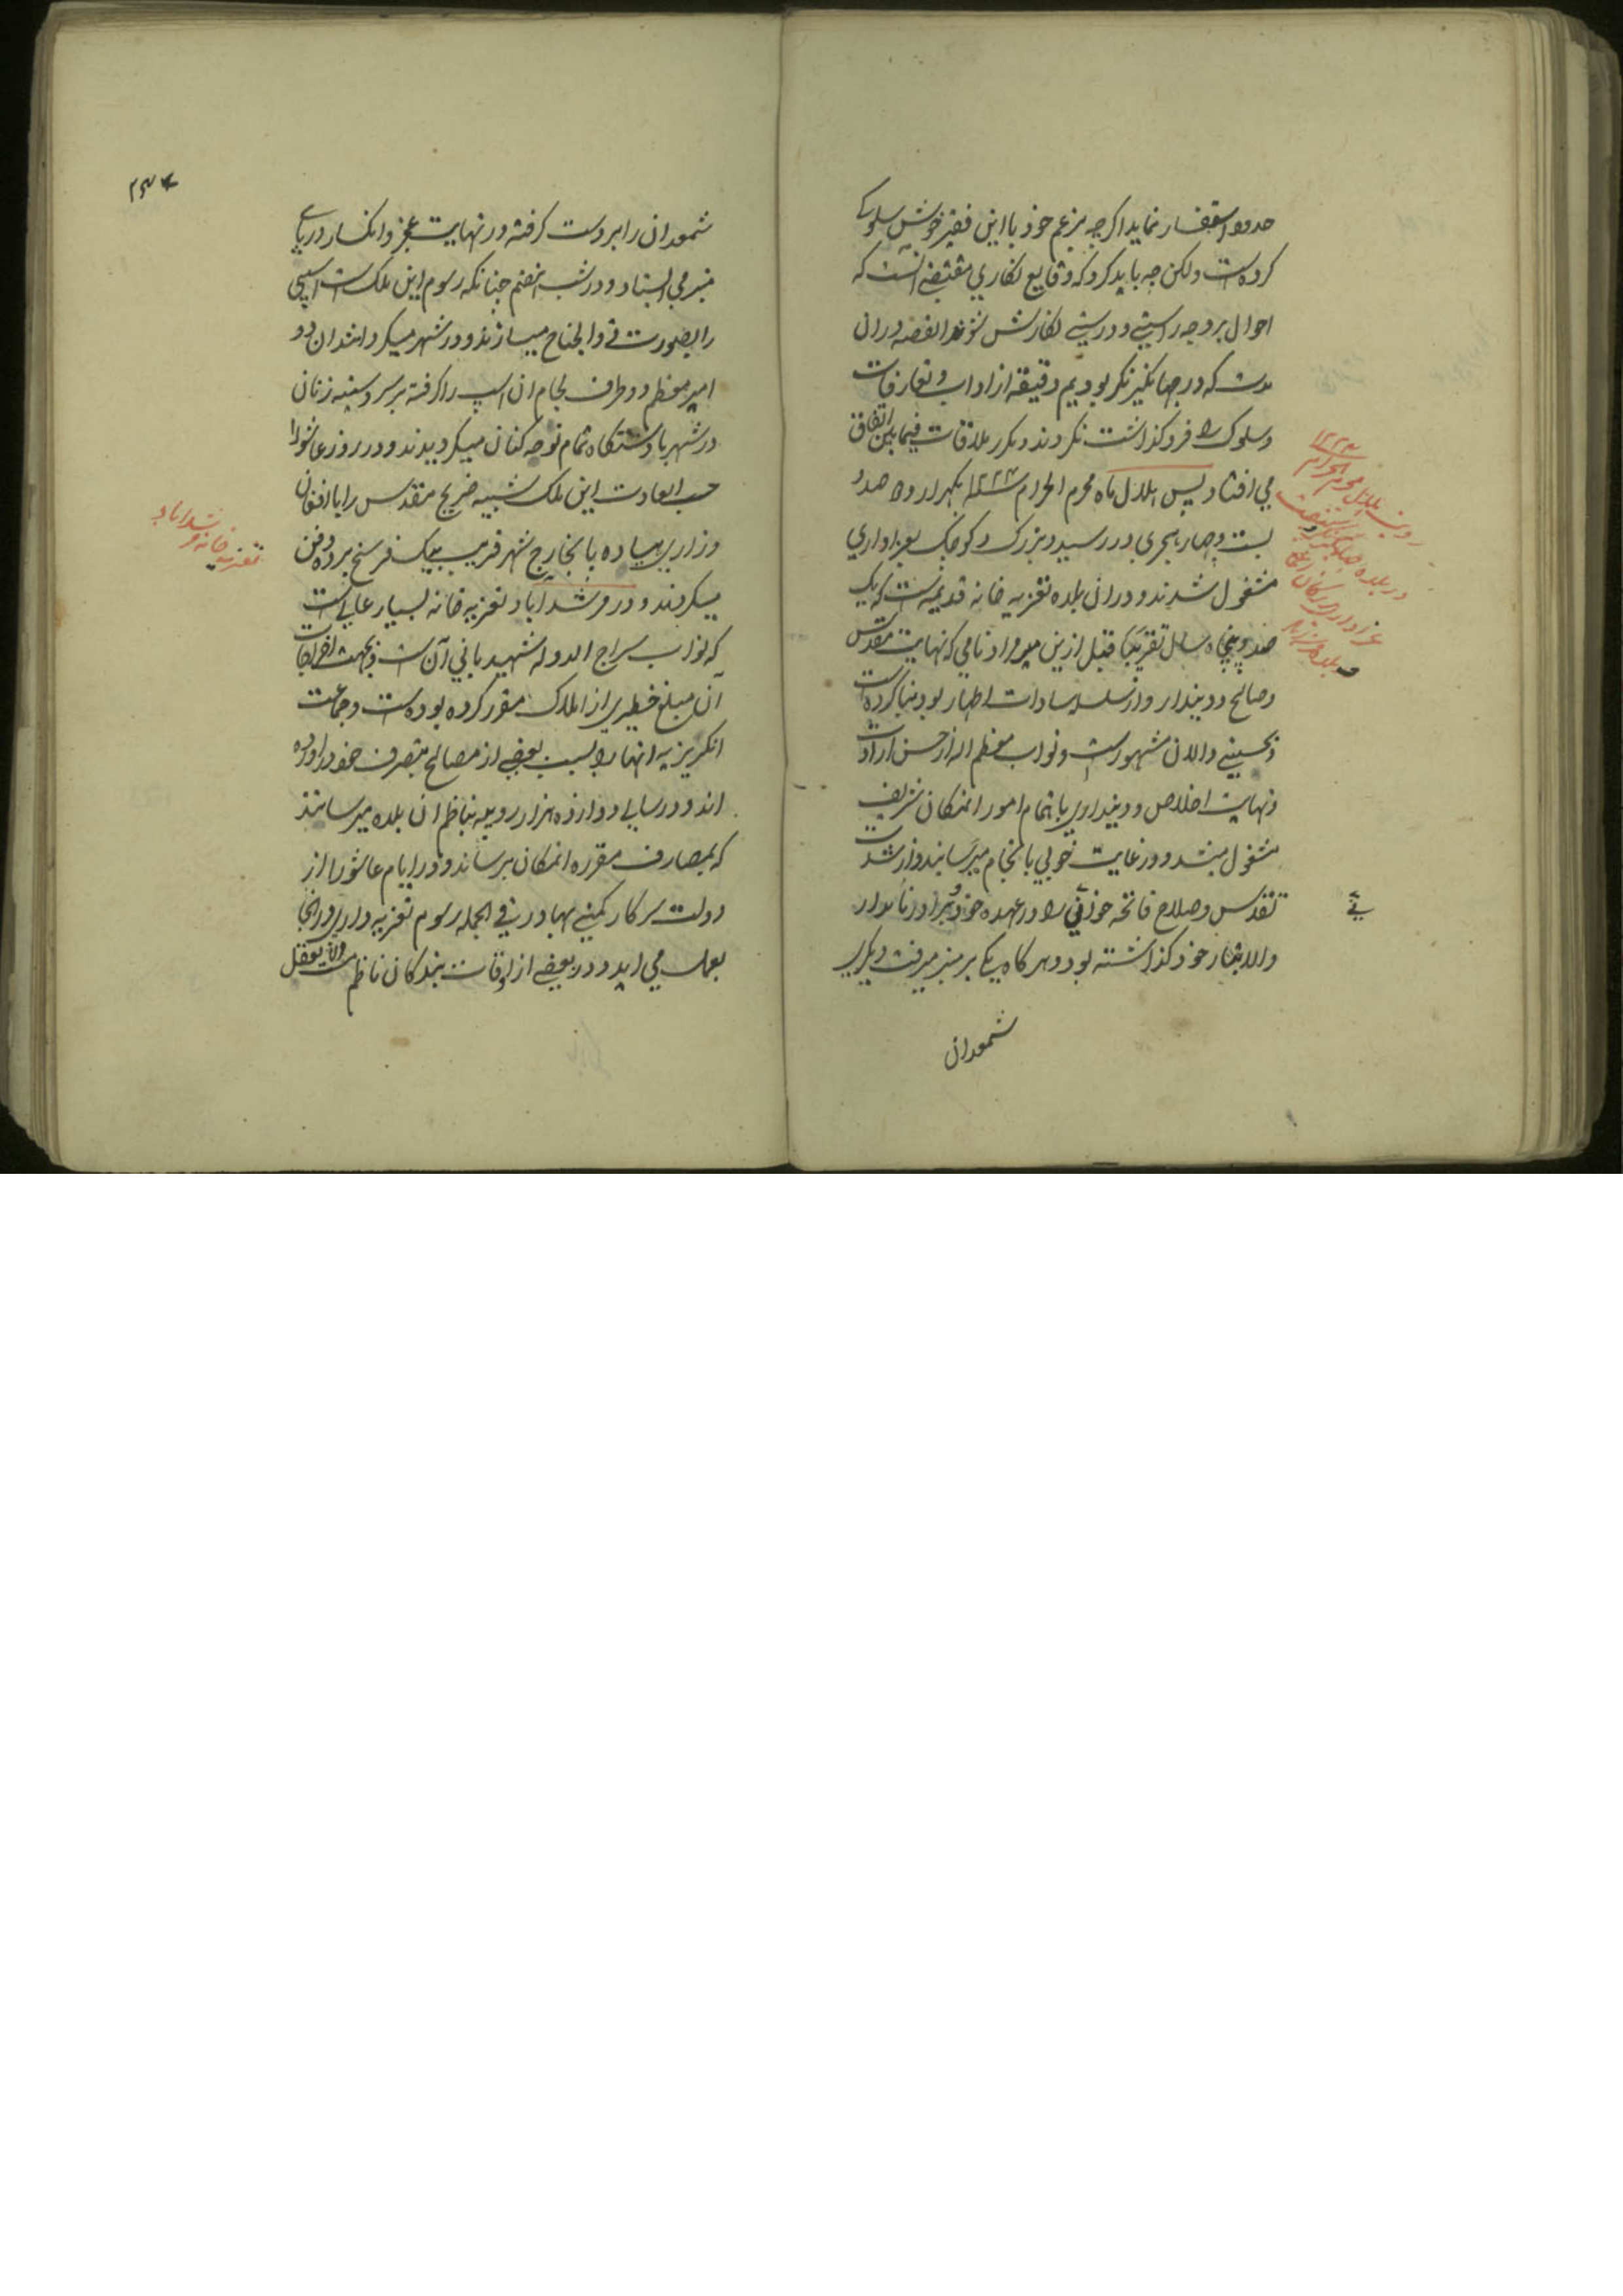 استفسار نماید اکرچه بزعم خود با این فقیر خوش سلوکے
کرده است ولکن چه باید کرد که وقایع نکاری مقتضی انست که
احوال بر وجه راستی و درستی نکارش شوند القصه دران
مدت که در جهانکیر نکر بودیم دقیقه از اداب و تعارفات
وسلوک را فروکذاشت نکردند و مکرر ملاقات فیمابین اتفاق
می افتاد پس هلال ماه محرم الحرام سنه ۱۲۲۴ یکهزار و دو صد و
بست و چهار هجری در رسید و بزرک و کوچک بعزاداری
مشغول شدند و دران بلده تعزیه خانه قدیمی است که یک
صد و پنجاه سال تقریبًا قبل ازین میر مراد نامی که نهایت مقدس
وصالح و دیندار و از سلسله سادات اطهار بود بنا کرده است
و بحسینی دالان مشهور است و نواب معظم الیه از حسن ارادت
ونهایت اخلاص و دینداری باتمام امور انمکان شریف
مشغول میشد و در غایت خوبی بانجام میرسانید و از شدت
تقدس وصلاح فاتحه خوانی را در عهده خود و برادر نامدار
والاتبار خود کذاشته بود و هر کاه یکے بر منبر میرفت دیکری
شمعدان
رویت هلال محرم الحرام ۱۲۲۴
در بلده جهانکیر نکر
عزاداری
شمعدان را بر دست کرفته در نهایت عجز و انکسار در پای
منبر می ایستاد و در شب هفتم چنانکه رسوم این ملک است اسپی
را بصورت ذوالجناح میسازند و در شهر میکردانند ان دو
امیر معظم دو طرف لجام ان اسپ را کرفته بر سر و سینه زنان
در شهر با دستکاه تمام نوحه کنان میکردیدند و در روز عاشورا
حسب العادت این ملک شبیه ضریح مقدس را با افغان
وزاری پیاده پا بخارج شهر قریب بیک فرسخ برده دفن
میکردند و در مرشداباد تعزیه خانه بسیار عالی است
که نواب سراج الدوله شهید بانی آن است و بجهت اخراجات
آن مبلغ خطیری از املاک مقرر کرده بوده است و جماعت
انکریزیه انها را بسبب بعضی از مصالح بتصرف خود دراورده
اند و در سالی دوازده هزار روپیه بناظم ان بلده میرسانند
که بمصارف مقرره انمکان برساند و در ایام عاشورا از
دولت سرکار کمپنی بهادر فی الجمله رسوم تعزیه داری در انجا
بعمل می اید و در بعضی از اوقات بندکان ناظم
تعزیه خانه مرشداباد